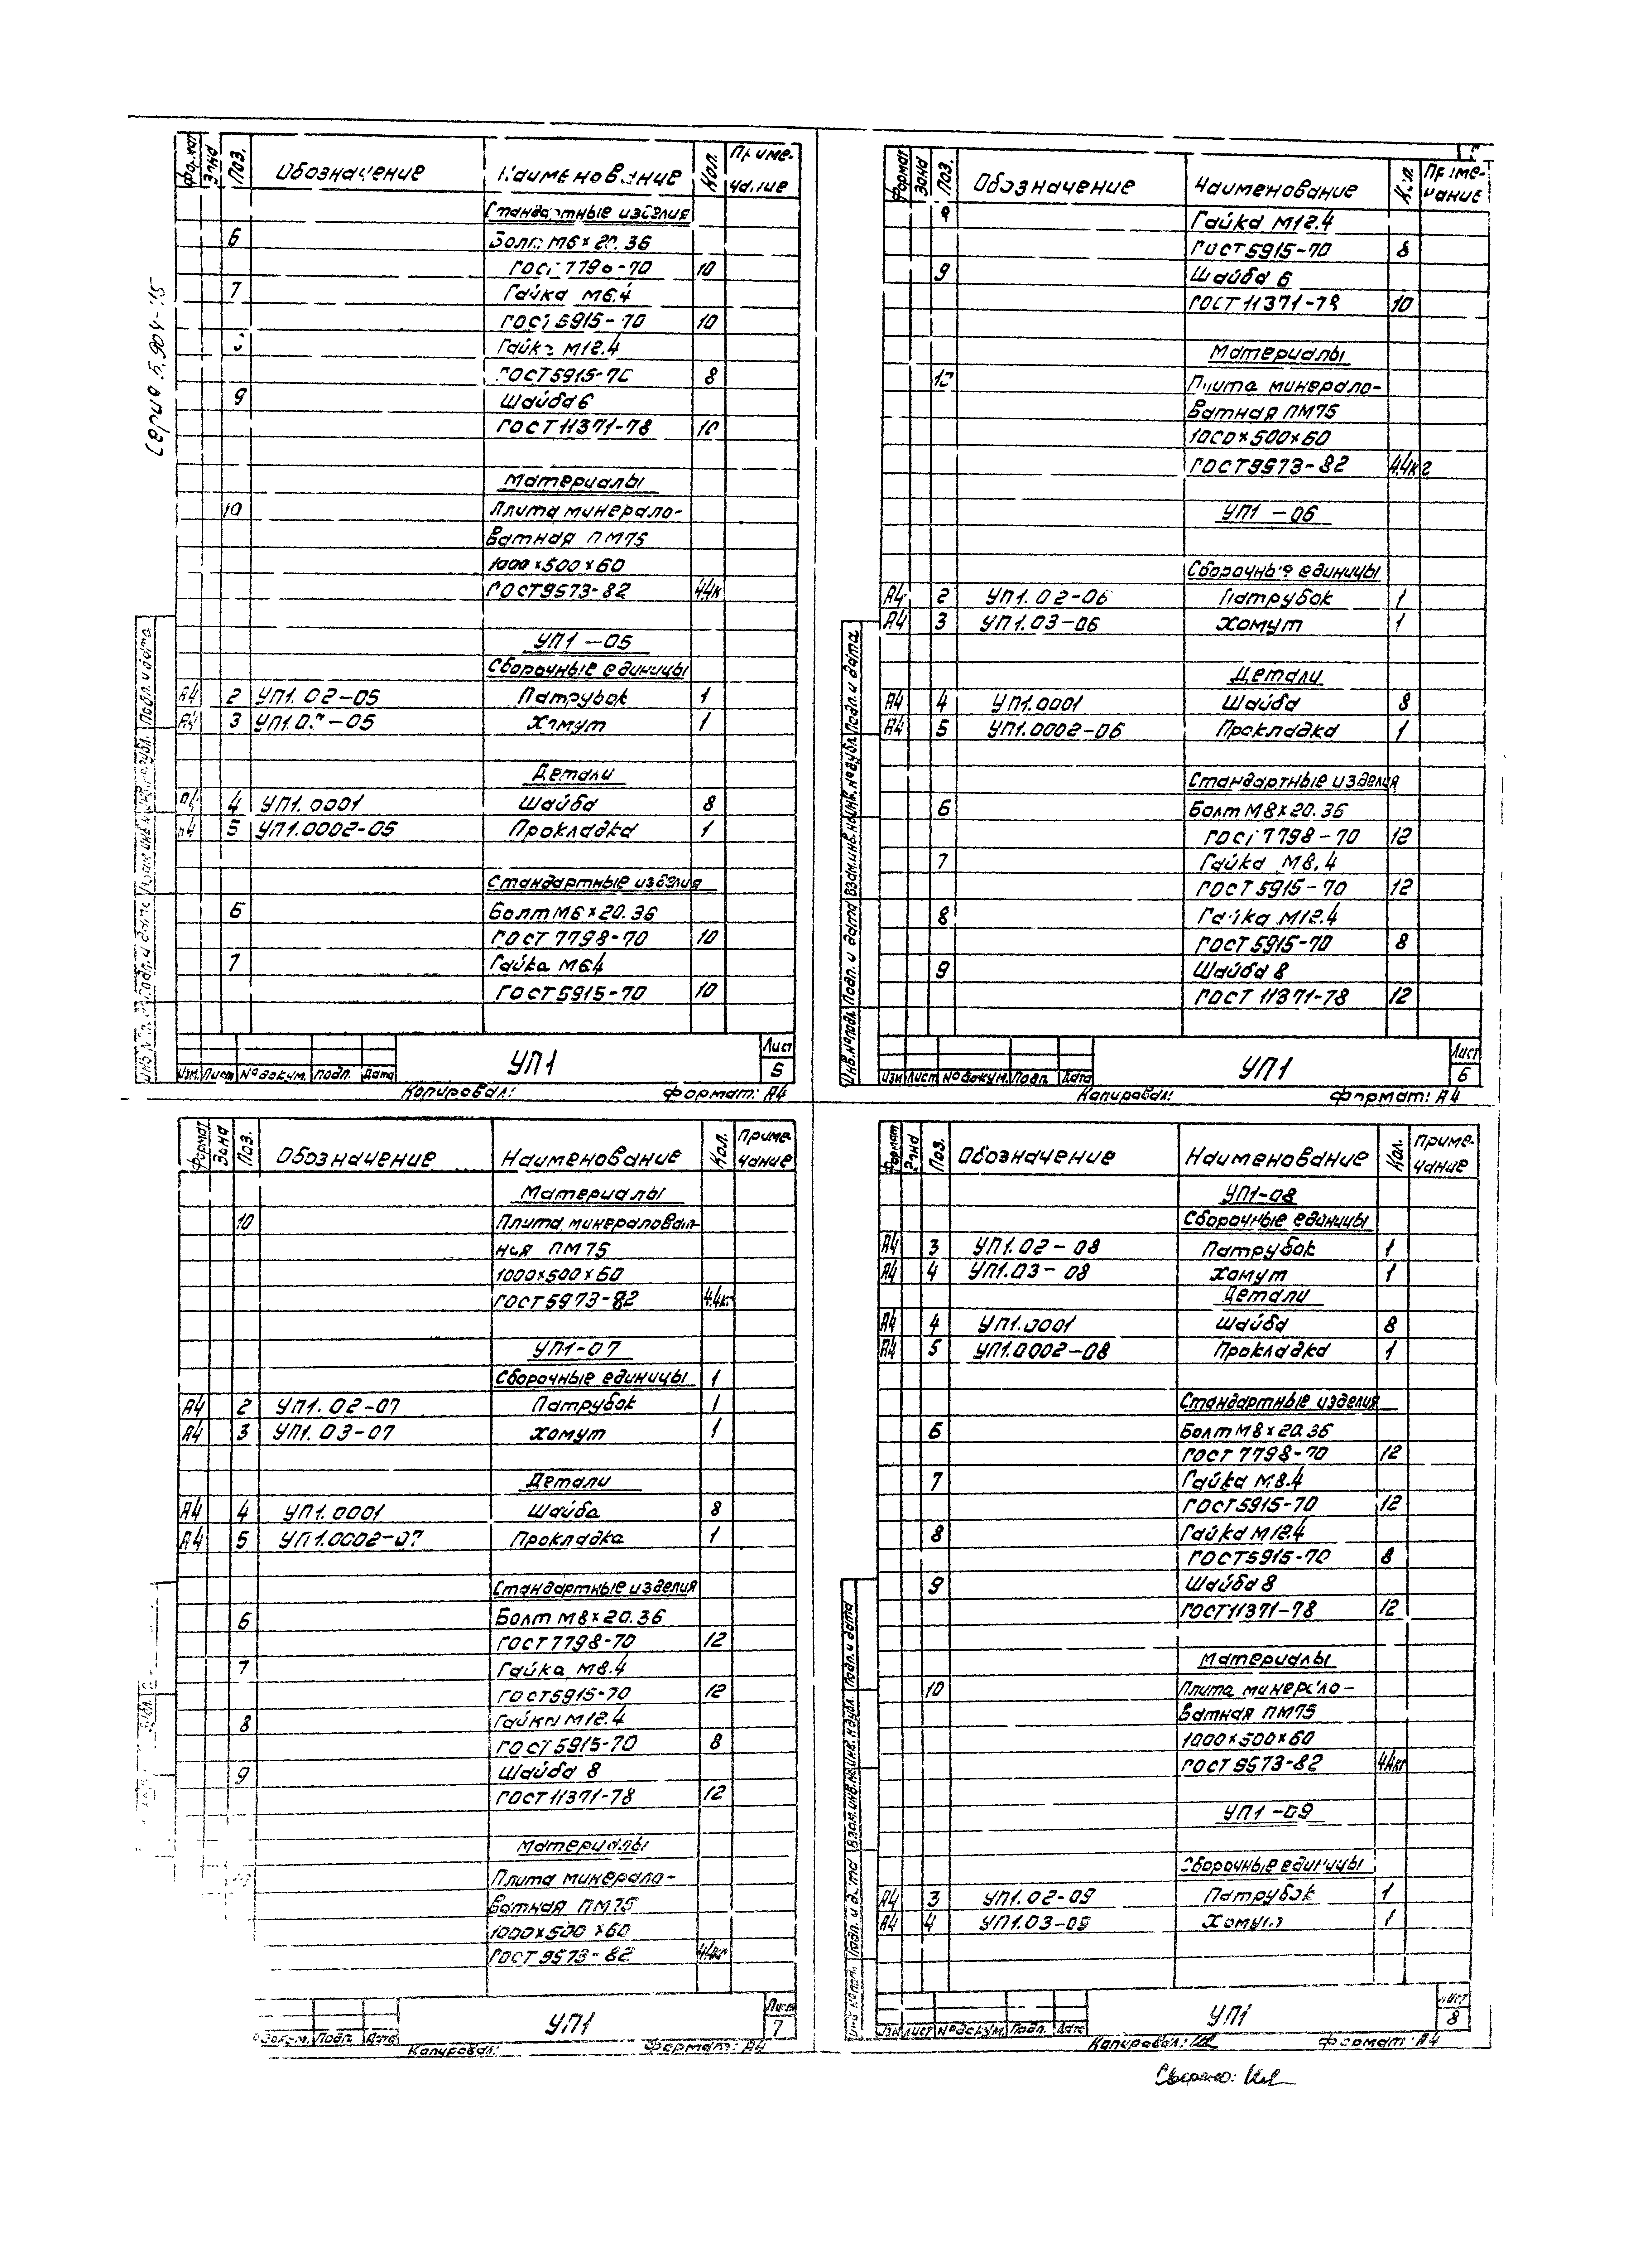 Серия 5.904-
Формат Зона Поз. Обозначение Наименование Кол. Примечание
Стандартные изделия
6 Болт М6×20.36
ГОСТ 7798-70 10
7 Гайка М6.4
ГОСТ 5915-70 10
Гайка М12.4
ГОСТ 5915-70 8
9 Шайба 6
ГОСТ 11371-78 10
Материалы
10 Плита минерало-
ватная ПМ75
1000×500×60
ГОСТ 9573-82 4.4к
УП1-05
Сборочные единицы
А4 2 УП1.02-05 Патрубок 1
А4 3 УП1.03-05 Хомут 1
Детали
А4 4 УП1.0001 Шайба 8
А4 5 УП1.0002-05 Прокладка 1
Стандартные изделия
6 Болт М6×20.36
ГОСТ 7798-70 10
7 Гайка М6.4
ГОСТ 5915-70 10
Изм. Лист № докум. Подп. Дата УП1 Лист 5
Копировал: Формат: А4
Формат Зона Поз. Обозначение Наименование Кол. Примечание
8 Гайка М12.4
ГОСТ 5915-70 8
9 Шайба 6
ГОСТ 11371-78 10
Материалы
10 Плита минерало-
ватная ПМ75
1000×500×60
ГОСТ 9573-82 4.4кг
УП1-06
Сборочные единицы
А4 2 УП1.02-06 Патрубок 1
А4 3 УП1.03-06 Хомут 1
Детали
А4 4 УП1.0001 Шайба 8
А4 5 УП1.0002-06 Прокладка 1
Стандартные изделия
6 Болт М8×20.36
ГОСТ 7798-70 12
7 Гайка М8.4
ГОСТ 5915-70 12
8 Гайка М12.4
ГОСТ 5915-70 8
9 Шайба 8
ГОСТ 11371-78 12
Инв.№ подл. Подп. и дата Взам.инв.№ Инв.№ дубл. Подп. и дата
Изм Лист № докум. Подп. Дата УП1 Лист 6
Копировал: Формат: А4
Формат Зона Поз. Обозначение Наименование Кол. Примечание
Материалы
10 Плита минераловат-
ная ПМ75
1000×500×60
ГОСТ 5973-82 4.4кг
УП1-07
Сборочные единицы 1
А4 2 УП1.02-07 Патрубок 1
А4 3 УП1.03-07 Хомут 1
Детали
А4 4 УП1.0001 Шайба 8
А4 5 УП1.0002-07 Прокладка 1
Стандартные изделия
6 Болт М8×20.36
ГОСТ 7798-70 12
7 Гайка М8.4
ГОСТ 5915-70 12
8 Гайка М12.4
ГОСТ 5915-70 8
9 Шайба 8
ГОСТ 11371-78 12
Материалы
Плита минерало-
ватная ПМ75
1000×500×60
ГОСТ 9573-82 4.4кг
докум. Подп. Дата УП1 Лист 7
Копировал: Формат: А4
Формат Зона Поз. Обозначение Наименование Кол. Примечание
УП1-08
Сборочные единицы
А4 3 УП1.02-08 Патрубок 1
А4 4 УП1.03-08 Хомут 1
Детали
А4 4 УП1.0001 Шайба 8
А4 5 УП1.0002-08 Прокладка 1
Стандартные изделия
6 Болт М8×20.36
ГОСТ 7798-70 12
7 Гайка М8.4
ГОСТ 5915-70 12
8 Гайка М12.4
ГОСТ 5915-70 8
9 Шайба 8
ГОСТ 11371-78 12
Материалы
10 Плита минерало-
ватная ПМ75
1000×500×60
ГОСТ 9573-82 4.4кг
УП1-09
Сборочные единицы
А4 3 УП1.02-09 Патрубок 1
А4 4 УП1.03-09 Хомут 1
Подп. и дата Взам.инв.№ Инв.№ дубл. Подп. и дата
Изм Лист № докум. Подп. Дата УП1 Лист 8
Копировал: Формат: А4
Сверено: